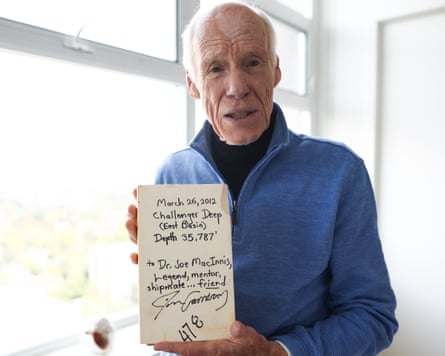 March 26, 2012
Challenger Deep
(East Basin)
Depth 35,787'
to Dr. Joe MacInnis,
Legend, mentor,
shipmate... friend